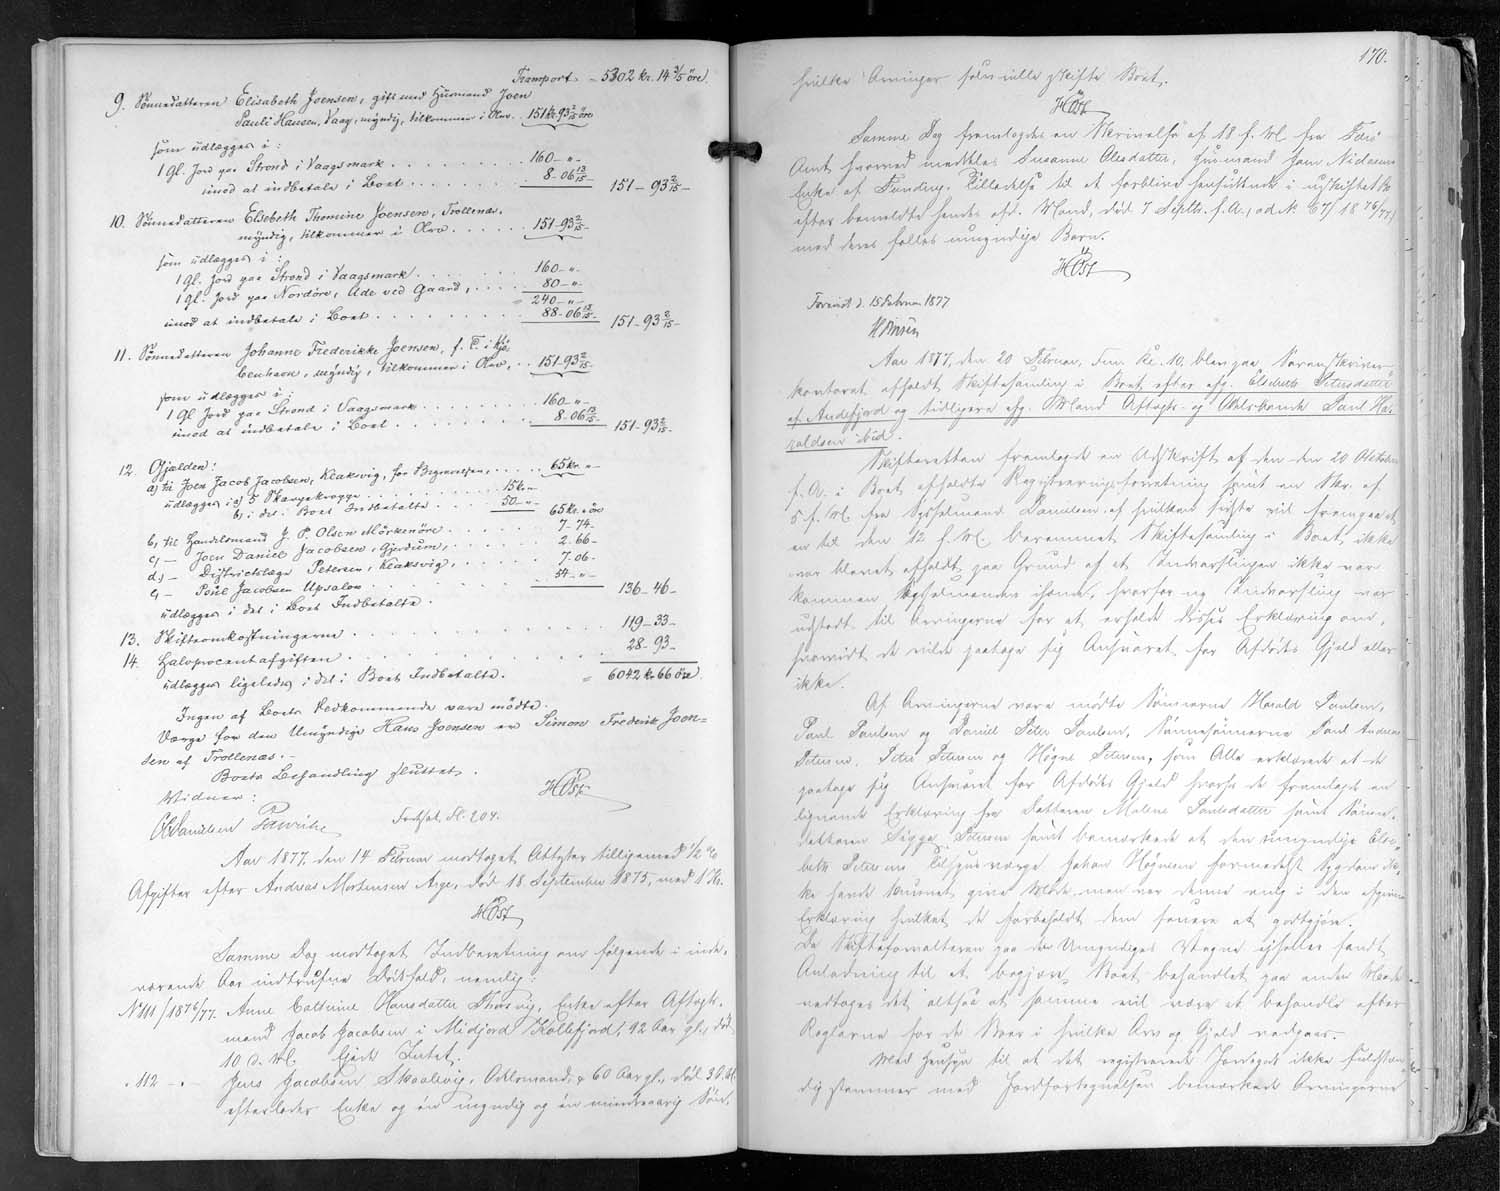 Transport - 5302 kr. 14 3/5 öre.
9. Sönnedatteren Elisabeth Joensen, gift med Husmand Joen
Pauli Hansen, Vaag, myndig, tilkommer i Arv. 151 kr. 93 2/15 öre
som udlægges i:
1 Gl. Jord paa Strond i Vaagsmark . . . 160 - " -
imod at indbetale i Boet . . . 8 - 06 13/15 - 151 - 93 2/15 -
10. Sönnedatteren Elsebeth Thomine Joensen, Trollenæs.
myndig, tilkommer i Arv . . . 151 - 93 2/15 -
som udlægges i:
1 gl. Jord paa Strond i Vaagsmark . . . 160 - " -
1 gl. Jord paa Nordöre, Ade ved Gaard, . . . 80 - " -
240 - " -
imod at indbetale i Boet . . . 88 - 06 13/15 - 151 - 93 2/15 -
11. Sönnedatteren Johanne Frederikke Joensen, f. T. i Kjö-
benhavn, myndig, tilkommer i Arv, . . 151 - 93 2/15 -
som udlægges i:
1 Gl Jord paa Strond i Vaagsmark . . . 160 - " -
imod at indbetale i Boet . . . 8 - 06 13/15 - 151 - 93 2/15
12. Gjælden:
a) til Joen Jacob Jacobsen, Klaksvig, for Begravelsen, . . . 65 kr. " -
udlægges i a) 5 . . . 15 kr. " -
b) i det i Boet Indbetalte . . . 50 - " - 65 kr. " öre
b, til Handelsmand J. P. Olsen Mörkenöre . . . 7 - 74 -
c, — Joen Daniel Jacobsen, Gjerdum, . . . 2 - 66 -
d, — Districtslæge Petersen, Klaksvig, . . . 7 - 06 -
e, — Poul Jacobsen Upsalen . . . 54 - " -
udlægges i det i Boet Indbetalte . 136 - 46 -
13. Skifteomkostningerne . . . 119 - 33 -
14. Halvprocentafgiften . . . 28 - 93 -
udlægges ligeledes i det i Boet Indbetalte. = 6042 kr 66 öre.
Ingen af Boets Vedkommende vare mödte.
Værge for den Umyndige Hans Joensen er Simon Frederik Joen=
sen af Trollenæs. -
Boets Behandling sluttet.
HÖst
Vidner:
Danielsen
Fortsat Fl. 204.
Aar 1877 den 14 Februar modtaget tilligemed 1/2 %
Afgifter efter Andreas Mortensen Arge, död 18 September 1875, med 1 Kr.
HÖst
Samme Dag modtaget Indberetning om følgende i inde-
værende Aar indtrufne Dødsfald, nemlig:
No 111/1876/77. Anne Cathrine Hansdatter Thorsvig, Enke efter Aftægts-
mand Jacob Jacobsen i Midjord Kollefjord, 82 Aar gl., död
10 d. M. Ejede Intet.
" 112 - " - Jens Jacobsen Skaalevig, Odelsmand, 60 Aar gl., död 3 d. M.
efterlader Enke og én myndig og én mindreaarig Søn,
170.
hvilke Arvinger selv ville skifte Boet.
HÖst
Samme Dag fremlagdes en Skrivelse af 18 f. M. fra Færø
Amt hvorved meddeles Susanne Olesdatter, Husmand Joen
Enke af Funding, Tilladelse til at forblive hensiddende i uskiftet Bo
efter bemeldte hendes afd. Mand, død 7 Septbr. f. A., ad No. 67/1876/77,
med deres fælles umyndige Børn.
HÖst
Foreviist d. 15 Februar 1877
HFinsen
Aar 1877, den 20 Februar, Fm. Kl. 10, blev paa Sorenskriver-
kontoret afholdt Skiftesamling i Boet efter afg. Elsebeth Petersdatter
af Andefjord og tidligere afg. Mand Aftægts- og Odelsbonde Paul Ha-
raldsen ibid.
Skifteretten fremlagde en Udskrift af den den 20 October
f. A. i Boet afholdte Registreringsforretning samt en Skr. af
5 f. M. fra Sysselmand Danielsen, af hvilken sidste vil fremgaae at
en til den 12 f. M. berammet Skiftesamling i Boet ikke
var blevet afholdt paa Grund af at Indvarslingen ikke var
kommen Sysselmanden ihænde, hvorfor ny Indvarsling var
udstedt til Arvingerne for at erholde disses Erklæring om,
hvorvidt de vilde paatage sig Ansvaret for Afdødes Gjeld eller
ikke.
Af Arvingerne vare mødte Sønnerne Harald Paulsen,
Paul Paulsen og Daniel Peter Paulsen, Sønnesønnerne Paul Andreas
Petersen, Peter Petersen og Høgne Petersen, som Alle erklærede at de
paatage sig Ansvaret for Afdødes Gjeld hvorhos de fremlagde en
lignende Erklæring fra Datteren Malene Paulsdatter samt Sønne-
datteren Sigga Petersen samt bemærkede at den umyndige Else-
beth Petersens Tilsynsværge Johan Høgnesen formedelst Sygdom ik-
ke havde kunnet give Møde, men var denne enig i den afgivne
Erklæring hvilket de forbeholdt dem senere at godtgjøre.
Da Skifteforvalteren paa den Umyndiges Vegne ejheller fandt
Anledning til at begjære Boet behandlet paa anden Maade
vedtoges det altsaa at samme vil være at behandle efter
Reglerne for de Boer i hvilke Arv og Gjeld vedgaaes.
Med Hensyn til at det registrerede Jordegods ikke fuldstæn-
dig stemmer med Jordfortegnelsen bemærkede Arvingerne